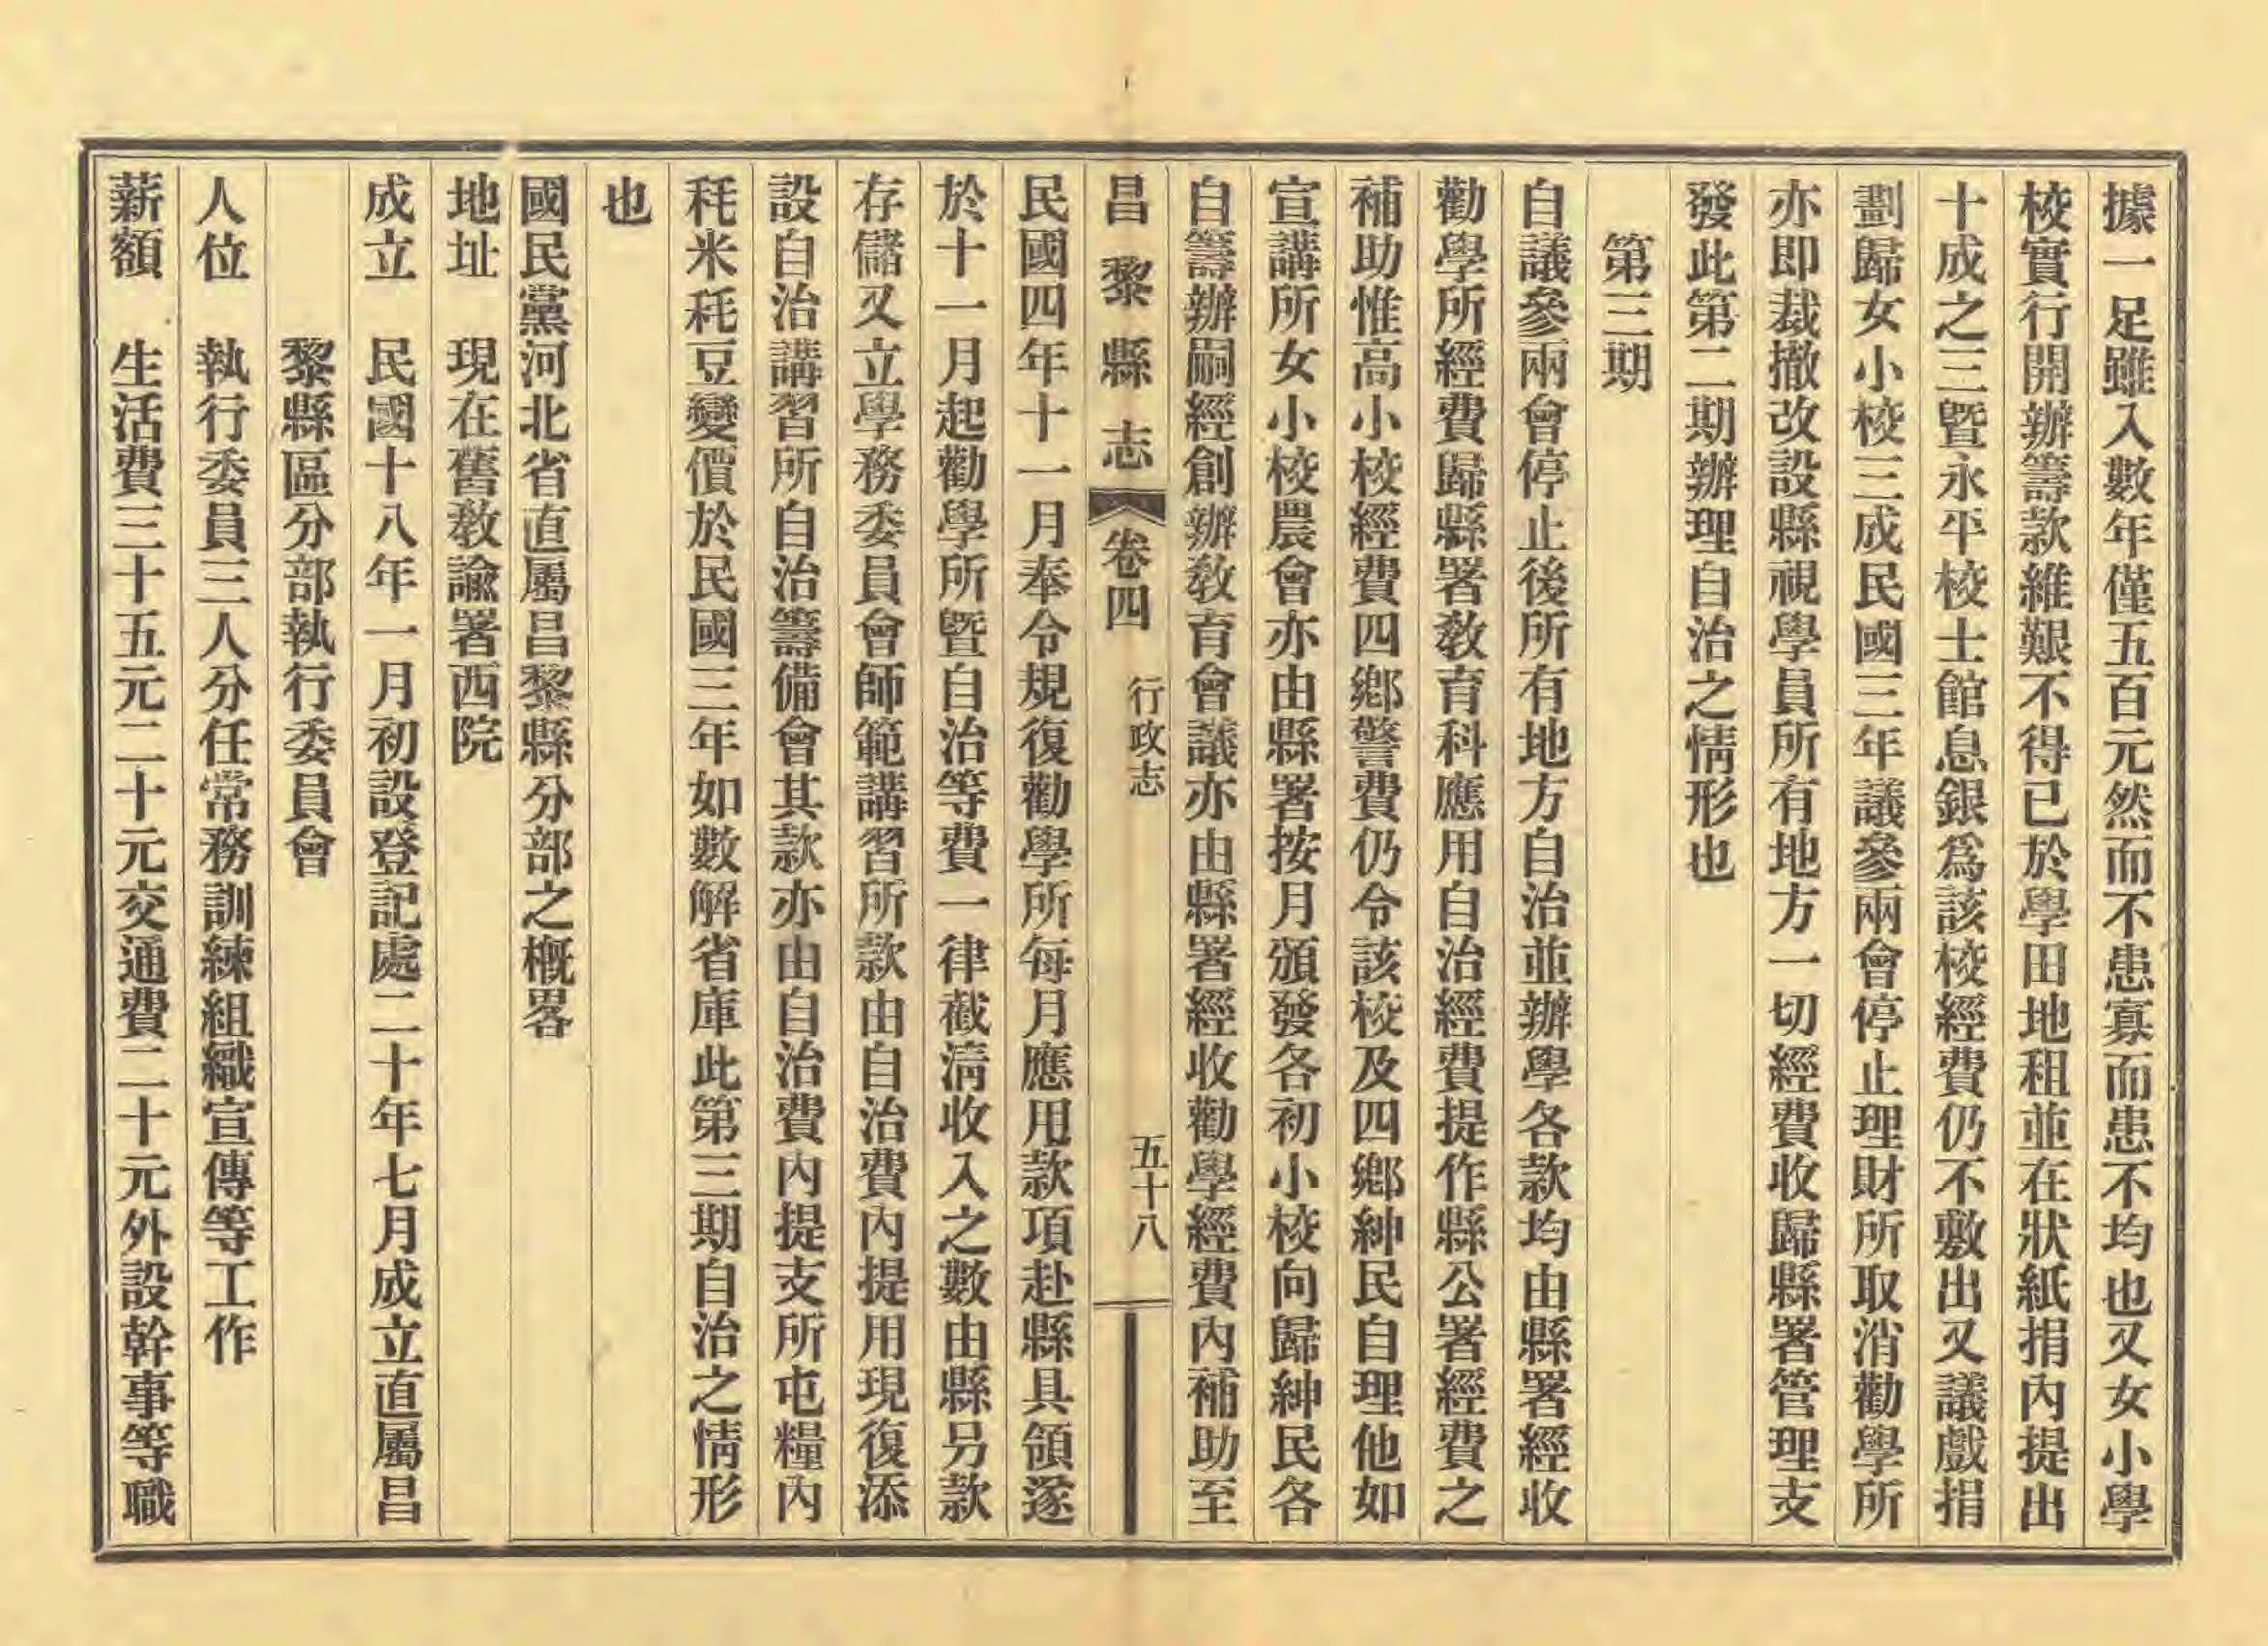 據一足雖入數年僅五百元然而不患寡而患不均也又女小學
校實行開辦籌款維艱不得已於學田地租並在狀紙捐內提出
十成之三暨永平校士館息銀爲該校經費仍不敷出又議戲捐
劃歸女小校三成民國三年議參兩會停止理財所取消勸學所
亦即裁撤改設縣視學員所有地方一切經費收歸縣署管理支
發此第二期辦理自治之情形也
第三期
自議參兩會停止後所有地方自治並辦學各款均由縣署經收
勸學所經費歸縣署敎育科應用自治經費提作縣公署經費之
補助惟高小校經費四鄉警費仍令該校及四鄉紳民自理他如
宣講所女小校農會亦由縣署按月頒發各初小校向歸紳民各
自籌辦嗣經創辦敎育會議亦由縣署經收勸學經費內補助至
昌黎縣志 卷四 行政志 五十八
民國四年十一月奉令規復勸學所每月應用款項赴縣具領遂
於十一月起勸學所暨自治等費一律截淸收入之數由縣另款
存儲又立學務委員會師範講習所款由自治費內提用現復添
設自治講習所自治籌備會其款亦由自治費內提支所屯糧內
秏米秏豆變價於民國三年如數解省庫此第三期自治之情形
也
國民黨河北省直屬昌黎縣分部之槪畧
地址 現在舊敎諭署西院
成立 民國十八年一月初設登記處二十年七月成立直屬昌
黎縣區分部執行委員會
人位 執行委員三人分任常務訓練組織宣傳等工作
薪額 生活費三十五元二十元交通費二十元外設幹事等職